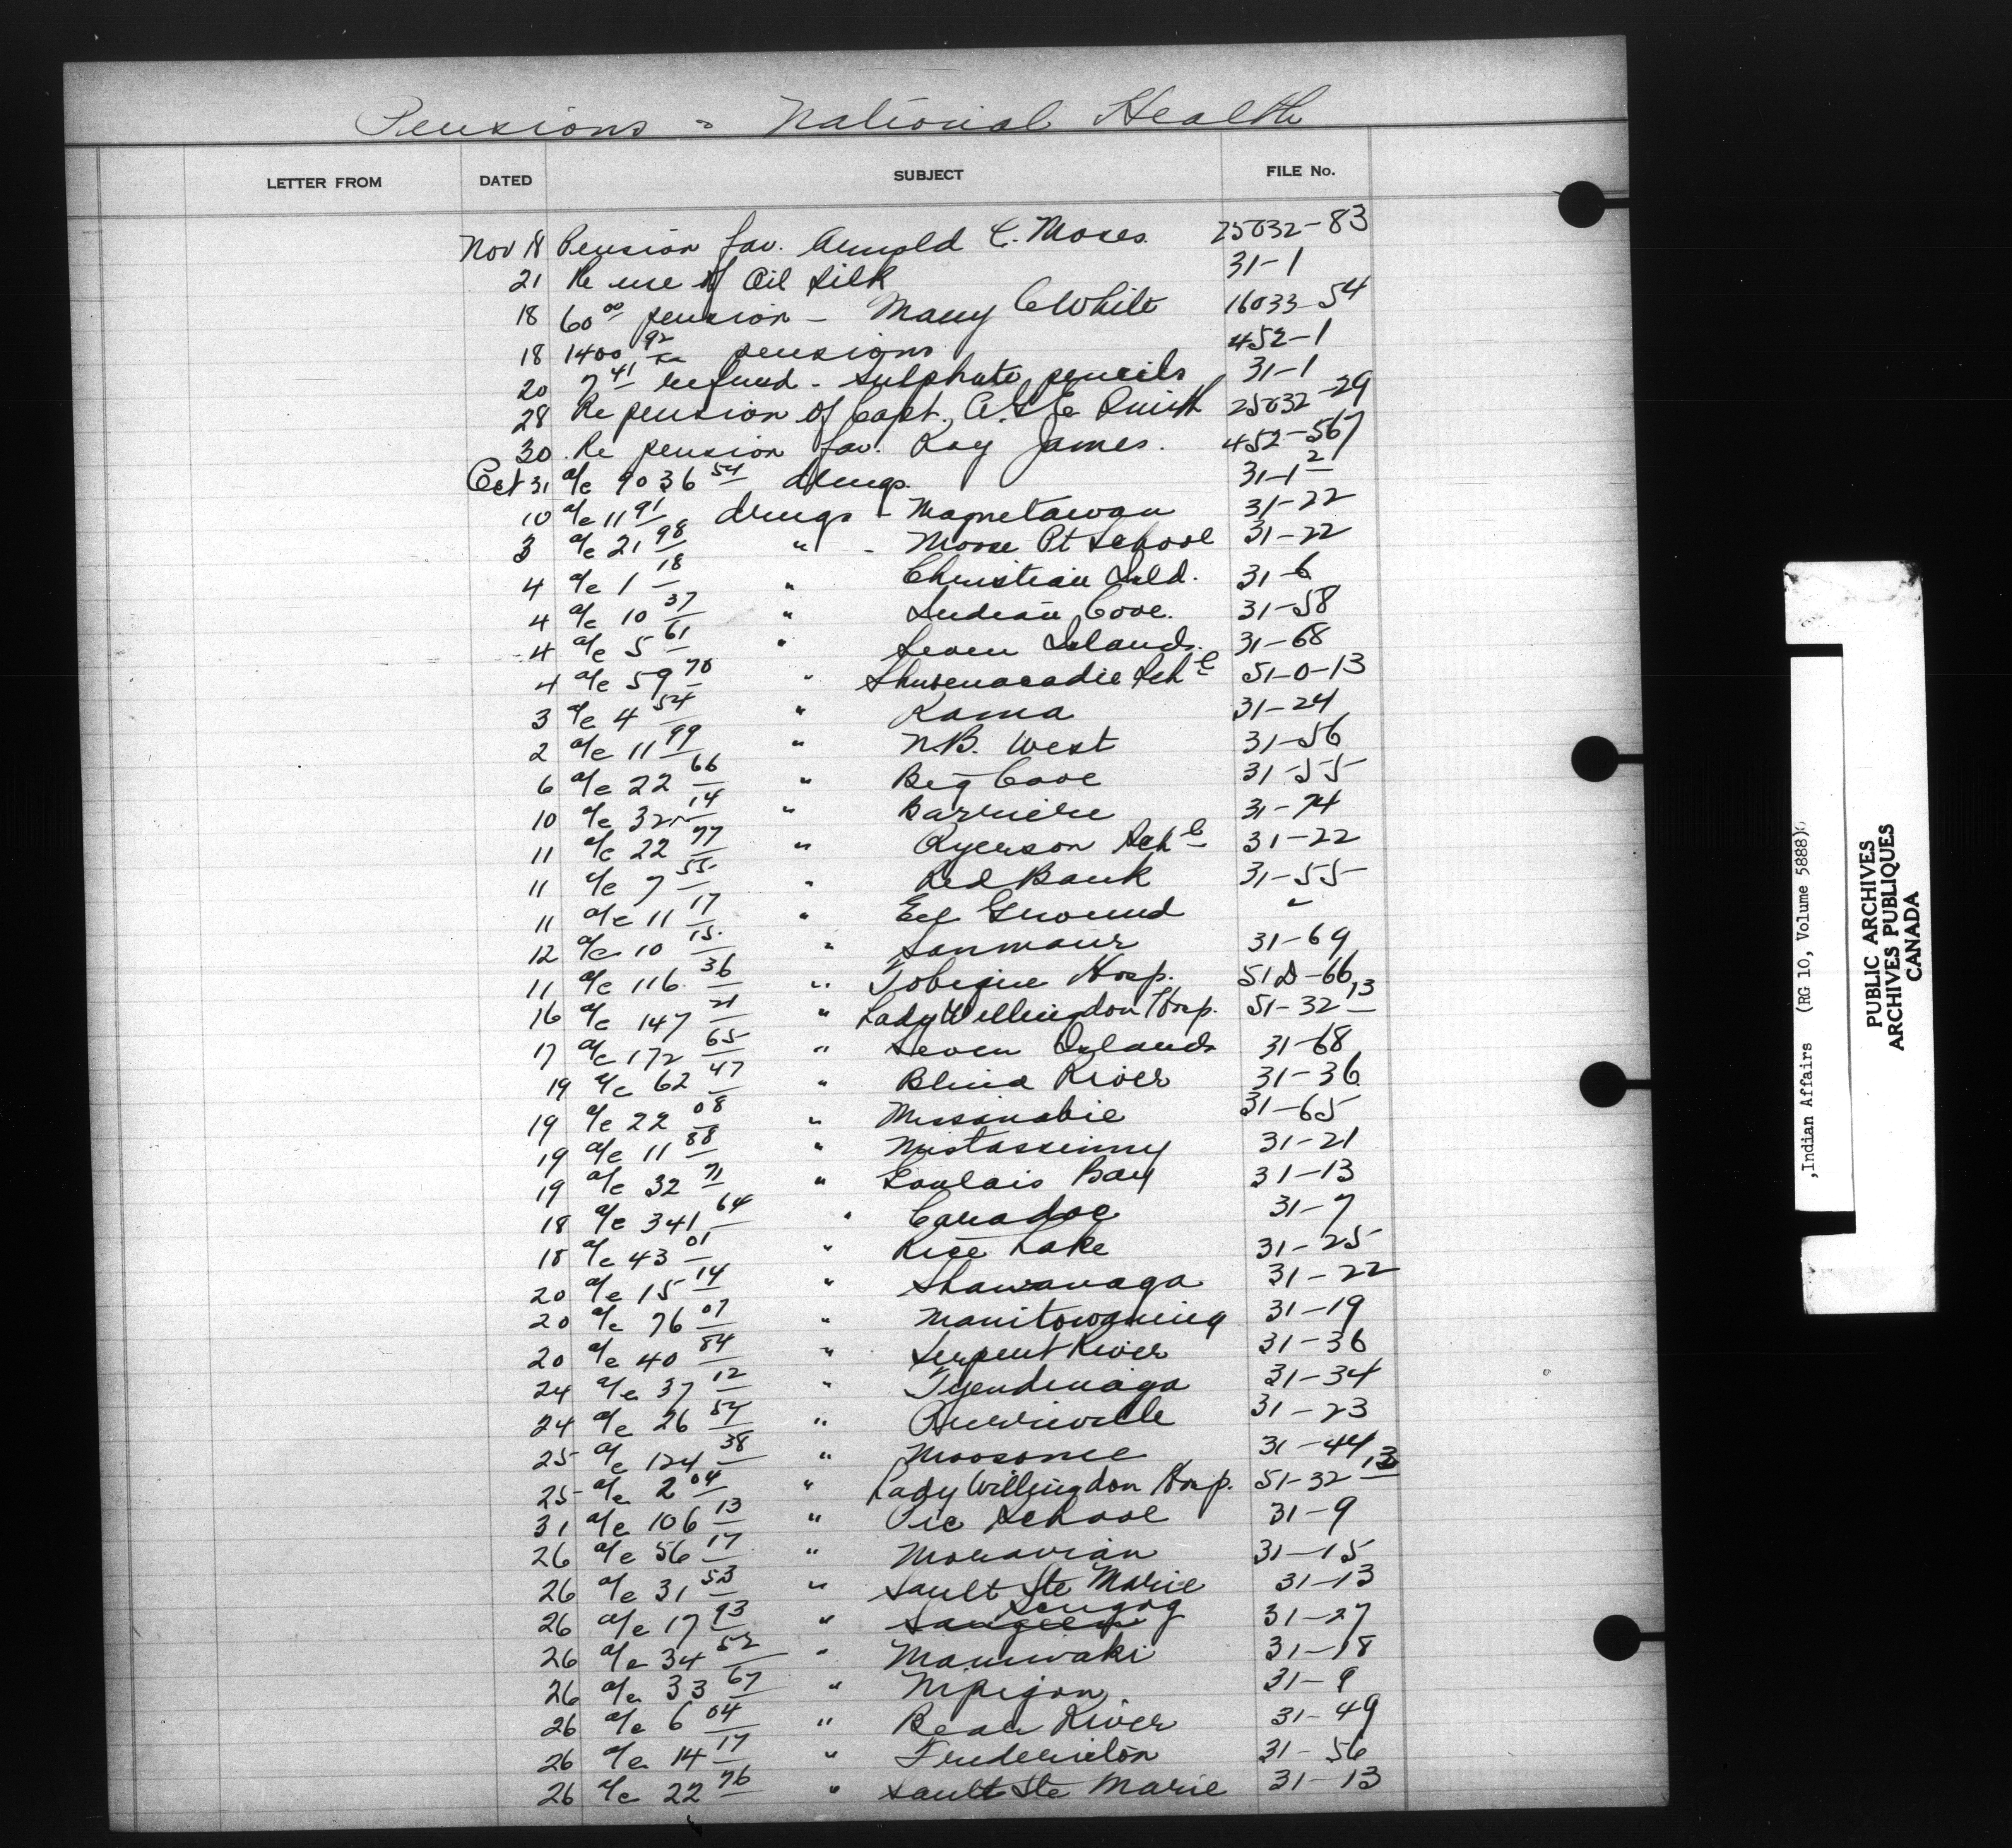 Pensions - National Health
LETTER FROM DATED SUBJECT FILE No.
Nov 18 Pension fav. Arnold C. Moses. 25032-83
21 Re use of Oil Silk 31-1
18 60 00 pension - Mary White 16033-54
18 1400 92 pensions 452-1
20 7 41 refund - Sulphate pencils 31-1
28 Re pension of Capt. A.G.E. Smith 25032-29
30 Re pension fav. Roy James. 452-567
Oct 31 a/c 9036 54 drugs. 31-1 2
10 a/c 11 91 drugs - Magnetawan 31-22
3 a/c 21 98 " - Moose Pt School 31-22
4 a/c 1 18 " Christian Isld. 31-6
4 a/c 10 37 " Indian Cove. 31-58
4 a/c 5 61 " Seven Islands. 31-68
4 a/c 59 70 " Shubenacadie Sch l 51-0-13
3 a/c 4 54 " Rama 31-24
2 a/c 11 99 " N.B. West 31-56
6 a/c 22 66 " Big Cove 31-55
10 a/c 32 14 " Barriere 31-74
11 a/c 22 77 " Ryerson Sch l 31-22
11 a/c 7 55 " Red Bank 31-55
11 a/c 11 17 " Eel Ground "
12 a/c 10 15 " Sanmaur 31-69
11 a/c 116 36 " Tobique Hosp. 51D-66,13
16 a/c 147 21 " Lady Willingdon Hosp. 51-32
17 a/c 172 65 " Seven Islands 31-68
19 a/c 62 47 " Blind River 31-36
19 a/c 22 08 " Missinabie 31-65
19 a/c 11 88 " Mistassinny 31-21
19 a/c 32 71 " Goulais Bay 31-13
18 a/c 341 64 " Caradoc 31-7
18 a/c 43 01 " Rice Lake 31-25
20 a/c 15 14 " Shawanaga 31-22
20 a/c 76 07 " Manitowaning 31-19
20 a/c 40 84 " Serpent River 31-36
24 a/c 37 12 " Tyendinaga 31-34
24 a/c 26 54 " Pierreville 31-23
25 a/c 124 38 " Moosonee 31-44
25 a/c 2 04 " Lady Willingdon Hosp. 51-32 13
31 a/c 106 13 " Pic School 31-9
26 a/c 56 17 " Moravian 31-15
26 a/c 31 53 " Sault Ste Marie 31-13
26 a/c 17 93 " Saugeen Scugog 31-27
26 a/c 34 52 " Maniwaki 31-18
26 a/c 33 67 " Nipigon 31-9
26 a/c 6 04 " Bear River 31-49
26 a/c 14 17 " Fredericton 31-56
26 a/c 22 76 " Sault Ste Marie 31-13
,Indian Affairs (RG 10, Volume 5888)
PUBLIC ARCHIVES
ARCHIVES PUBLIQUES
CANADA